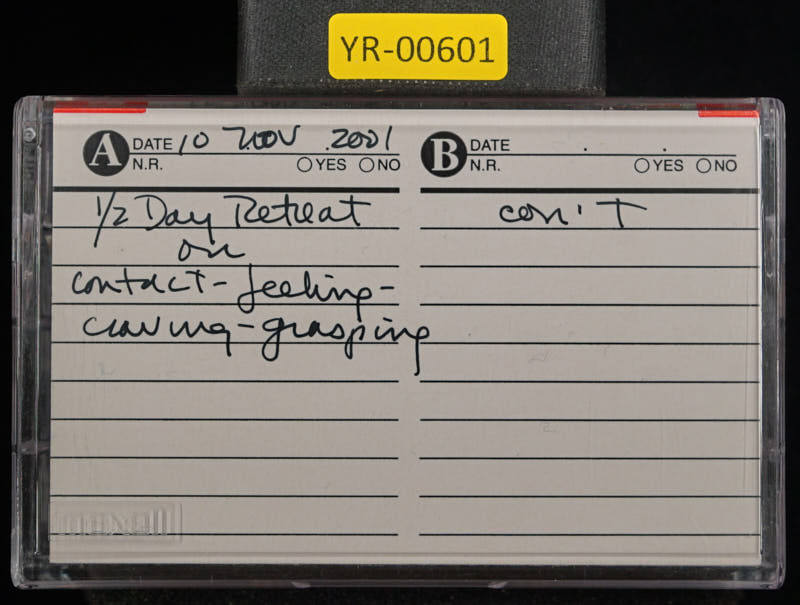 YR-00601
A DATE 10 NOV 2001
N.R. YES NO
1/2 Day Retreat
on
contact-feeling-
craving-grasping
B DATE . .
N.R. YES NO
con't
maxell